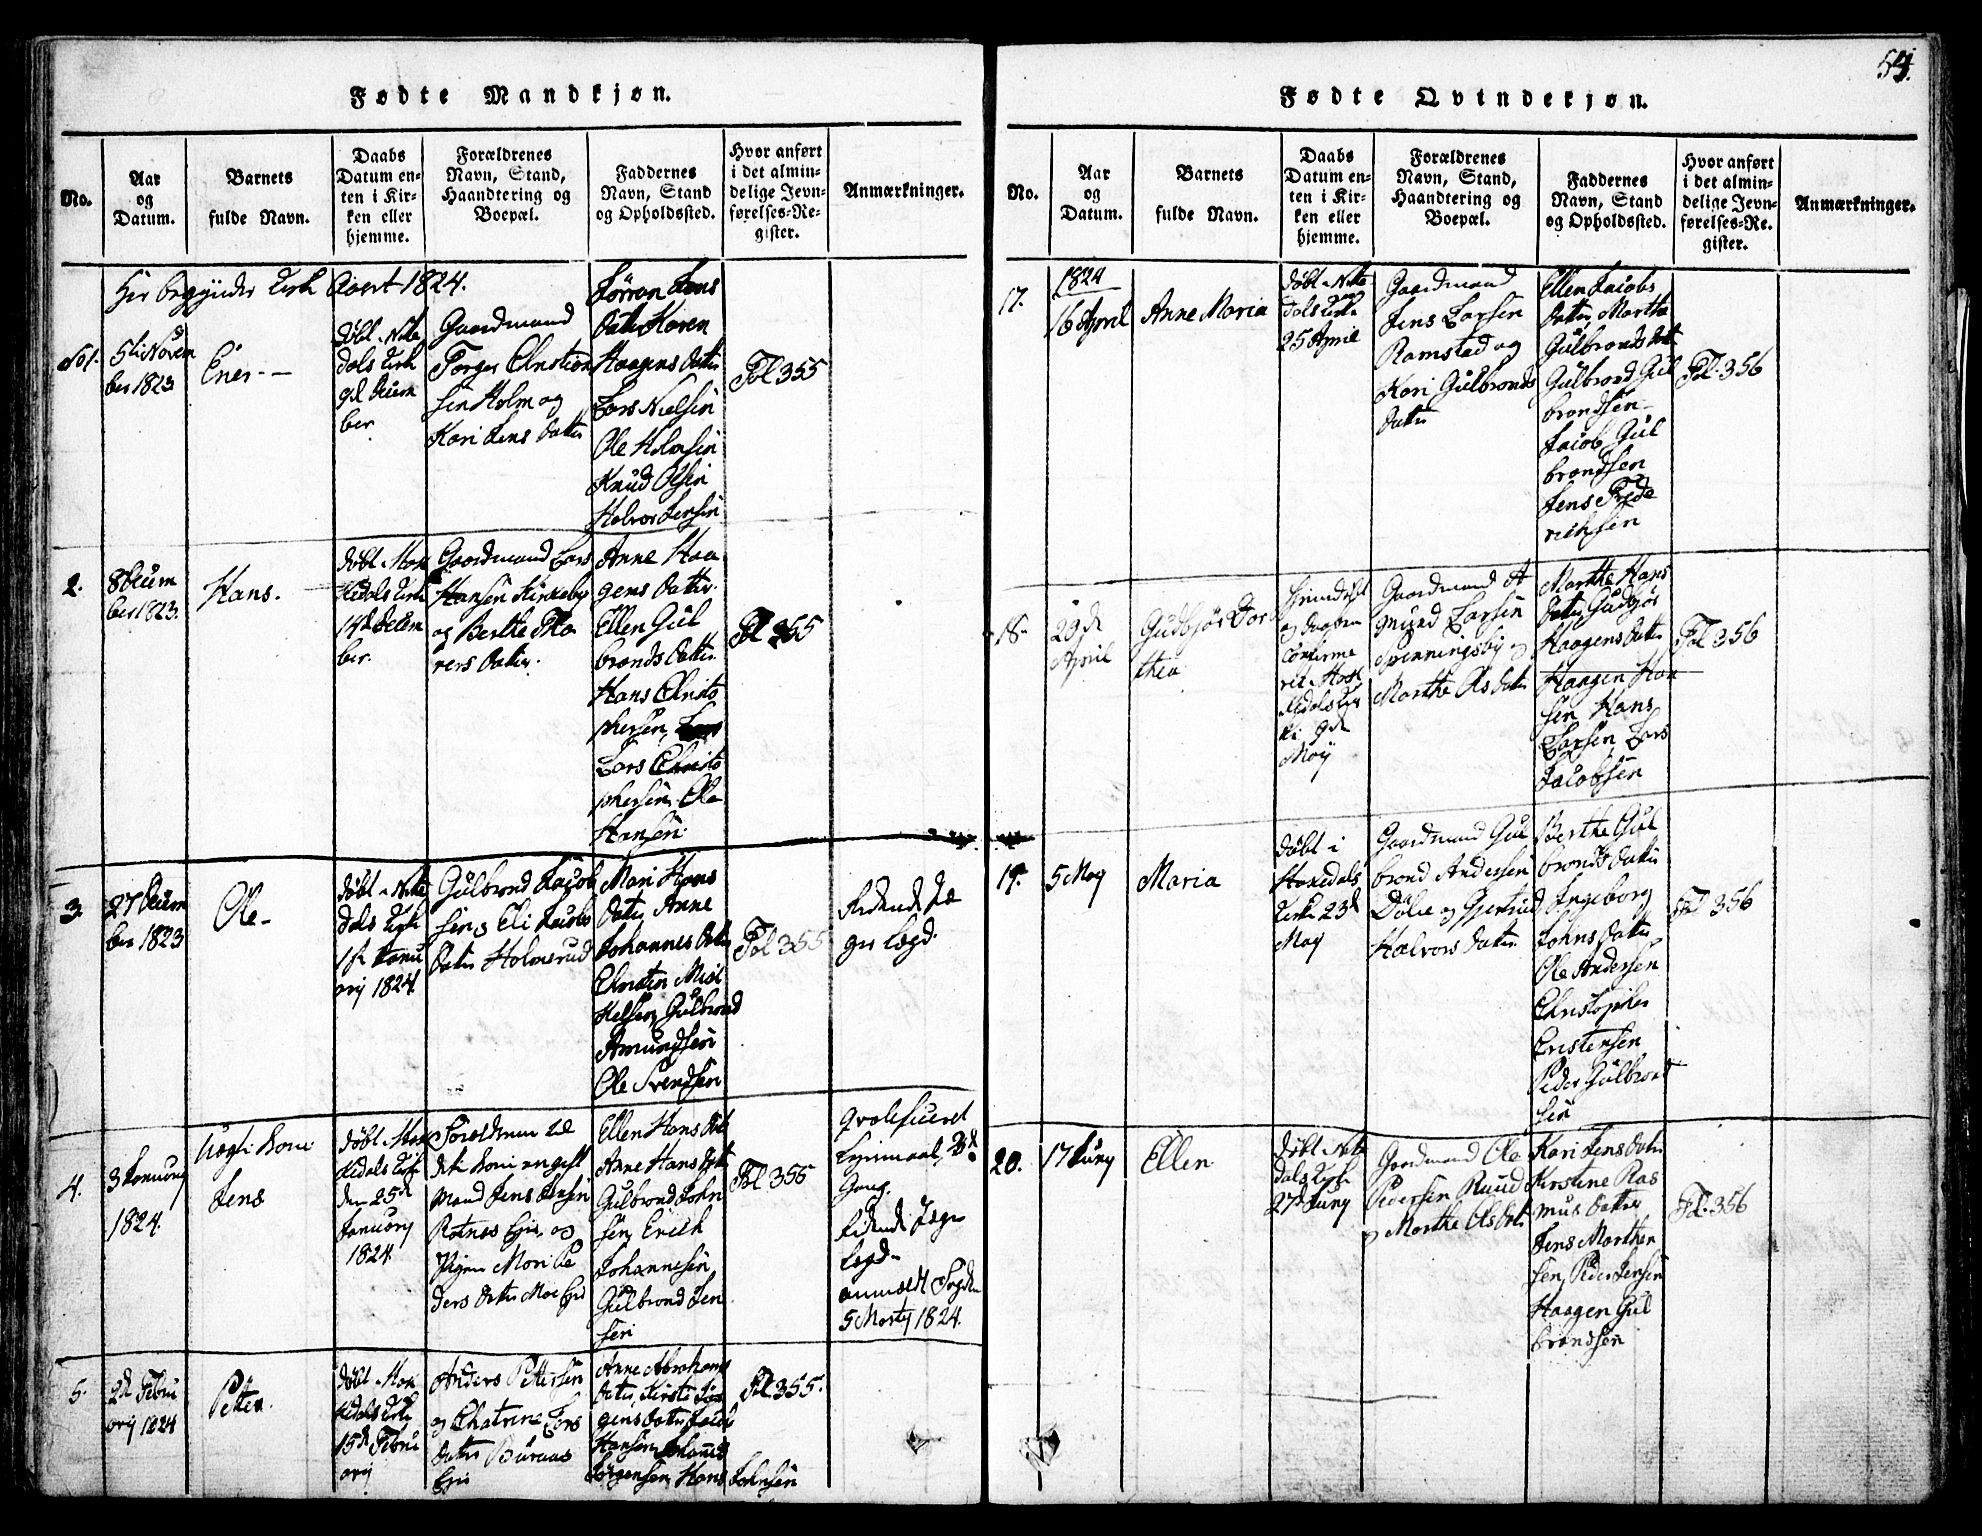 54.
Fødte Mandkjøn.
No.
Aar
og
Datum.
Barnets
fulde Navn.
Daabs
Datum en-
ten i Kir-
ken eller
hjemme.
Forældrenes
Navn, Stand,
Haandtering og
Boepæl.
Faddernes
Navn, Stand
og Opholdssted.
Hvor anført
i det almin-
delige Jevn-
førelses-Re-
gister.
Anmærkninger.
Her begynder Kirke Aaret 1824.
No 1.
5te Novem
ber 1823
Ener
døbt Nite
dals Kirk
ber
Gaardmand
Torger Christian
sen Holm og
Kari Jens Datter
Jens
Datter Karen
Haagens Datter
Lars Nielsen
Ole Holmsen
Knud Olsen
Halvor Jensen
Fol 355
2.
8 Decem
ber 1823.
Hans.
døbt Hak
kedals Kirke
14de Decem
ber.
Gaardmand Lars
Hansen Kirkeby
og Berthe Tho
rers Datter.
Anne Haa
gens Datter.
Ellen Gul
brands Datter
Hans Christo
phersen,
Lars Christo
phersen, Ole
Hansen.
Fol 355
3.
27 Decem
ber 1823
Ole
døbt Nite
dals Kirke
1ste Janu
arij 1824.
Gulbrand Jacob
sen, Eli Jacobs
Datter Holmsrud
Mari Hans
Datter, Anne
Johannes Datter
Christen Mick
kelsen, Gulbrand
Amundsen
Ole Svendsen
Fol 355
gs Lægd.
4.
3 Januarij
1824.
Uægte Søn
Jens
døbt Hak
kedals Kirke
den 25de
Januarij
1824
Forældrene til
dette Søn ungkl
mand Jens Jensen
Rotnes Eje, og
Pigen Mari Pe
ders Datter Moe Eje
Ellen Hans Dat
Anne Hans Datt
Gulbrand John
sen, Erich
Johannesen,
Gulbrand Jen
sen
Fol 355
Lejermaal,
Gang.
Lægd
anmeldt Fogden
5 Martij 1824.
5.
2de Febru
arij 1824
Petter.
døbt Hak
kedals Kirke
15de Febru
arij
Anders Pettersen
og Chatrine Lars
Datter Buraas
Eje
Anne Abrahams
Datter, Kirsti
gens Datter, Jacob
Hansen, Johannes
Jørgensen, Hans Johnsen
Fol 355.
Fødte Qvindekjøn.
No.
Aar
og
Datum.
Barnets
fulde Navn.
Daabs
Datum en-
ten i Kir-
ken eller
hjemme.
Forældrenes
Navn, Stand,
Haandtering og
Boepæl.
Faddernes
Navn, Stand
og Opholdssted.
Hvor anført
i det almin-
delige Jevn-
førelses-Re-
gister.
Anmærkninger.
17.
1824
16 April
Anne Maria
døbt Nite
dals Kirke
25 April
Gaardmand
Jens Larsen
Ramstad og
Kari Gulbrands
Datter
Ellen Jacobs
Datter, Marthe
Gulbrands Datt
Gulbrand Gul
brandsen
Jacob Gul
brandsen
Jens Frede
richsen
Fol. 356
18.
29de
April
Gudbjør Dor
thea
hjemdøbt
og Daaben
confirme
ret Hak
kedals Kir
ke 9de
Maij
Gaardmand A
mund Larsen
Spenningsby og
Marthe Ols Datter
Marthe Hans
Datter, Gudbjør
Haagens Datter
Haagen Han
sen, Hans
Larsen, Lars
Jacobsen
Fol 356
19.
5 Maj
Maria
døbt i
Hakedals
Kirke 23de
Maj
Gaardmand Gul
brand Andersen
Dølie og Gjertrud
Halvors Datter.
Berthe Gul
brands Datter
Ingeborg
Johns Datter
Ole Andersen
Christopher
Cristensen
Peder Gulbrand
sen
Fol 356
20.
17 Juny
Ellen
døbt Nite
dals Kirke
27de Juny
Gaardmand Ole
Pedersen Ruud
og Marthe Ols Datt
Kari Jens Datter
Kirstine Ras
mus Datter
Jens Marthen
sen, Peder Jensen
Haagen Gul
brandsen
Fol. 356